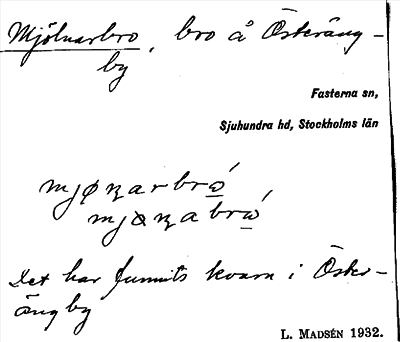 Mjölnarbro, bro å Österäng-
by
Fasterna sn,
Sjuhundra hd, Stockholms län
mjøɳarbrώ
mjøɳabrώ
Det har funnits kvarn i Öster-
ängby
L. MADSÉN 1932.